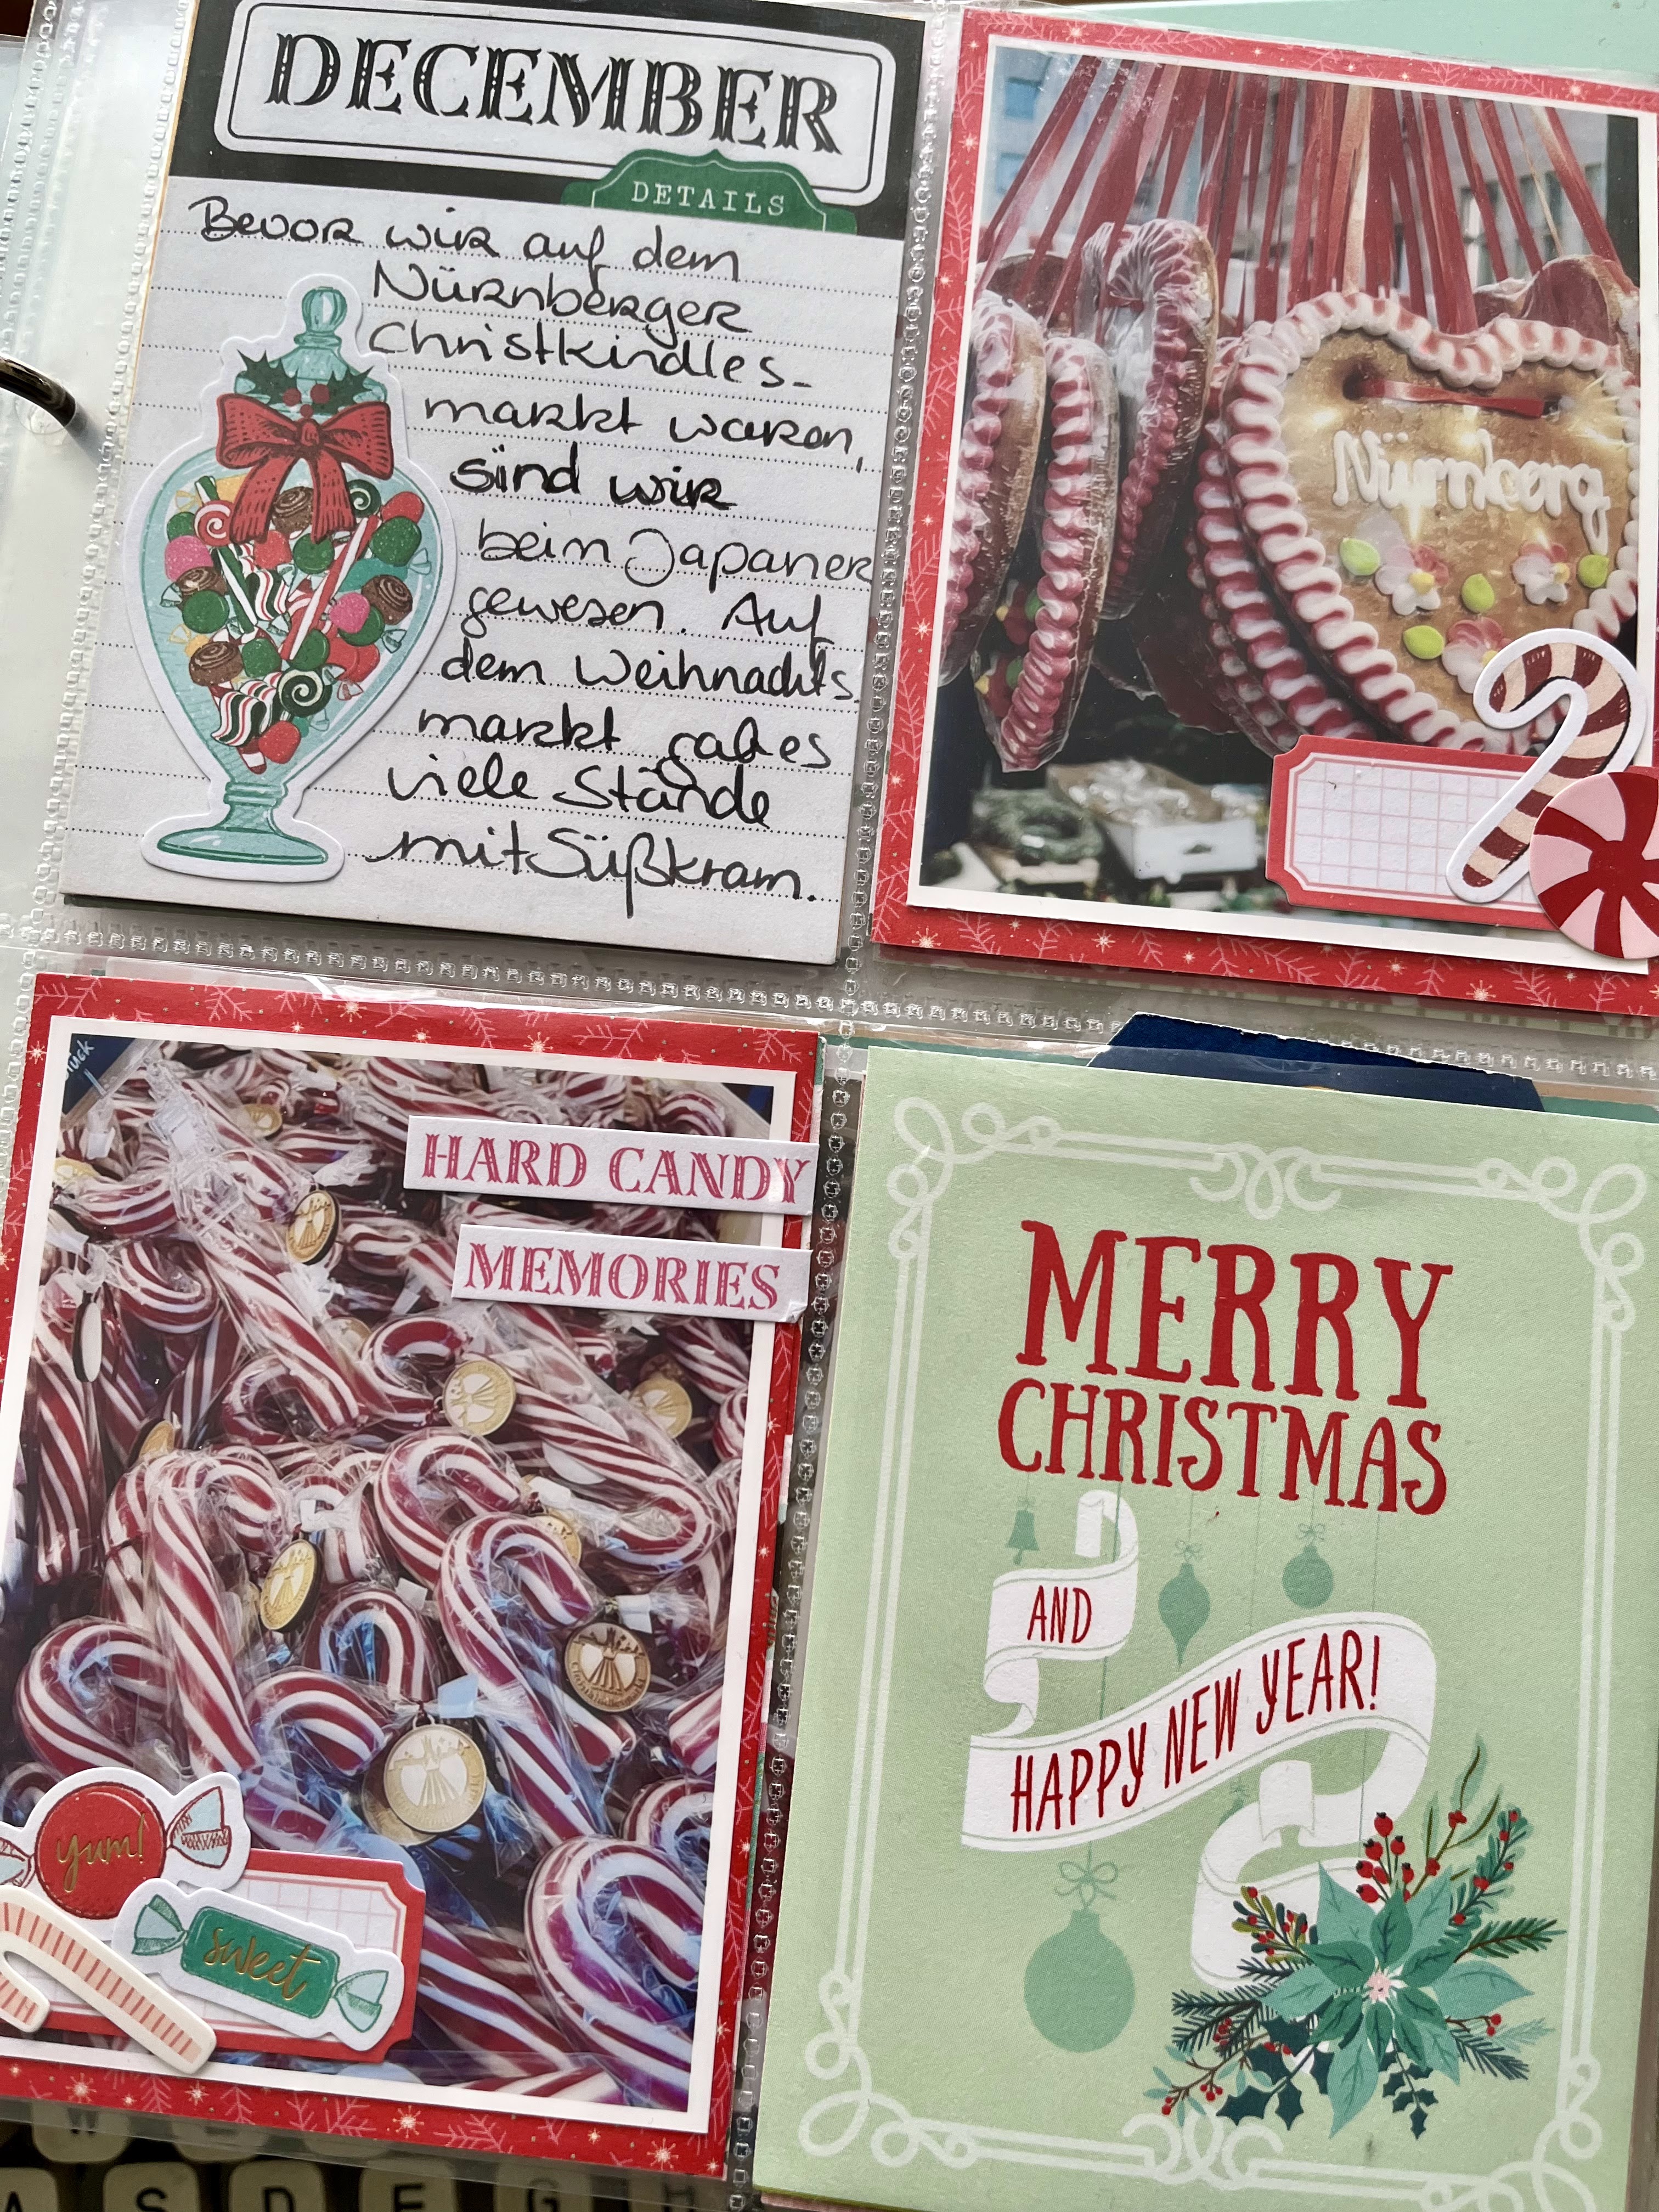 DECEMBER
DETAILS
Bevor wir auf dem
Nürnberger
Christkindles-
markt waren,
sind wir
beim Japaner
gewesen. Auf
dem Weihnachts
markt gab es
viele Stände
mit Süßkram.
Nürnberg
HARD CANDY
MEMORIES
yum!
sweet
MERRY
CHRISTMAS
AND
HAPPY NEW YEAR!
A S D F G H